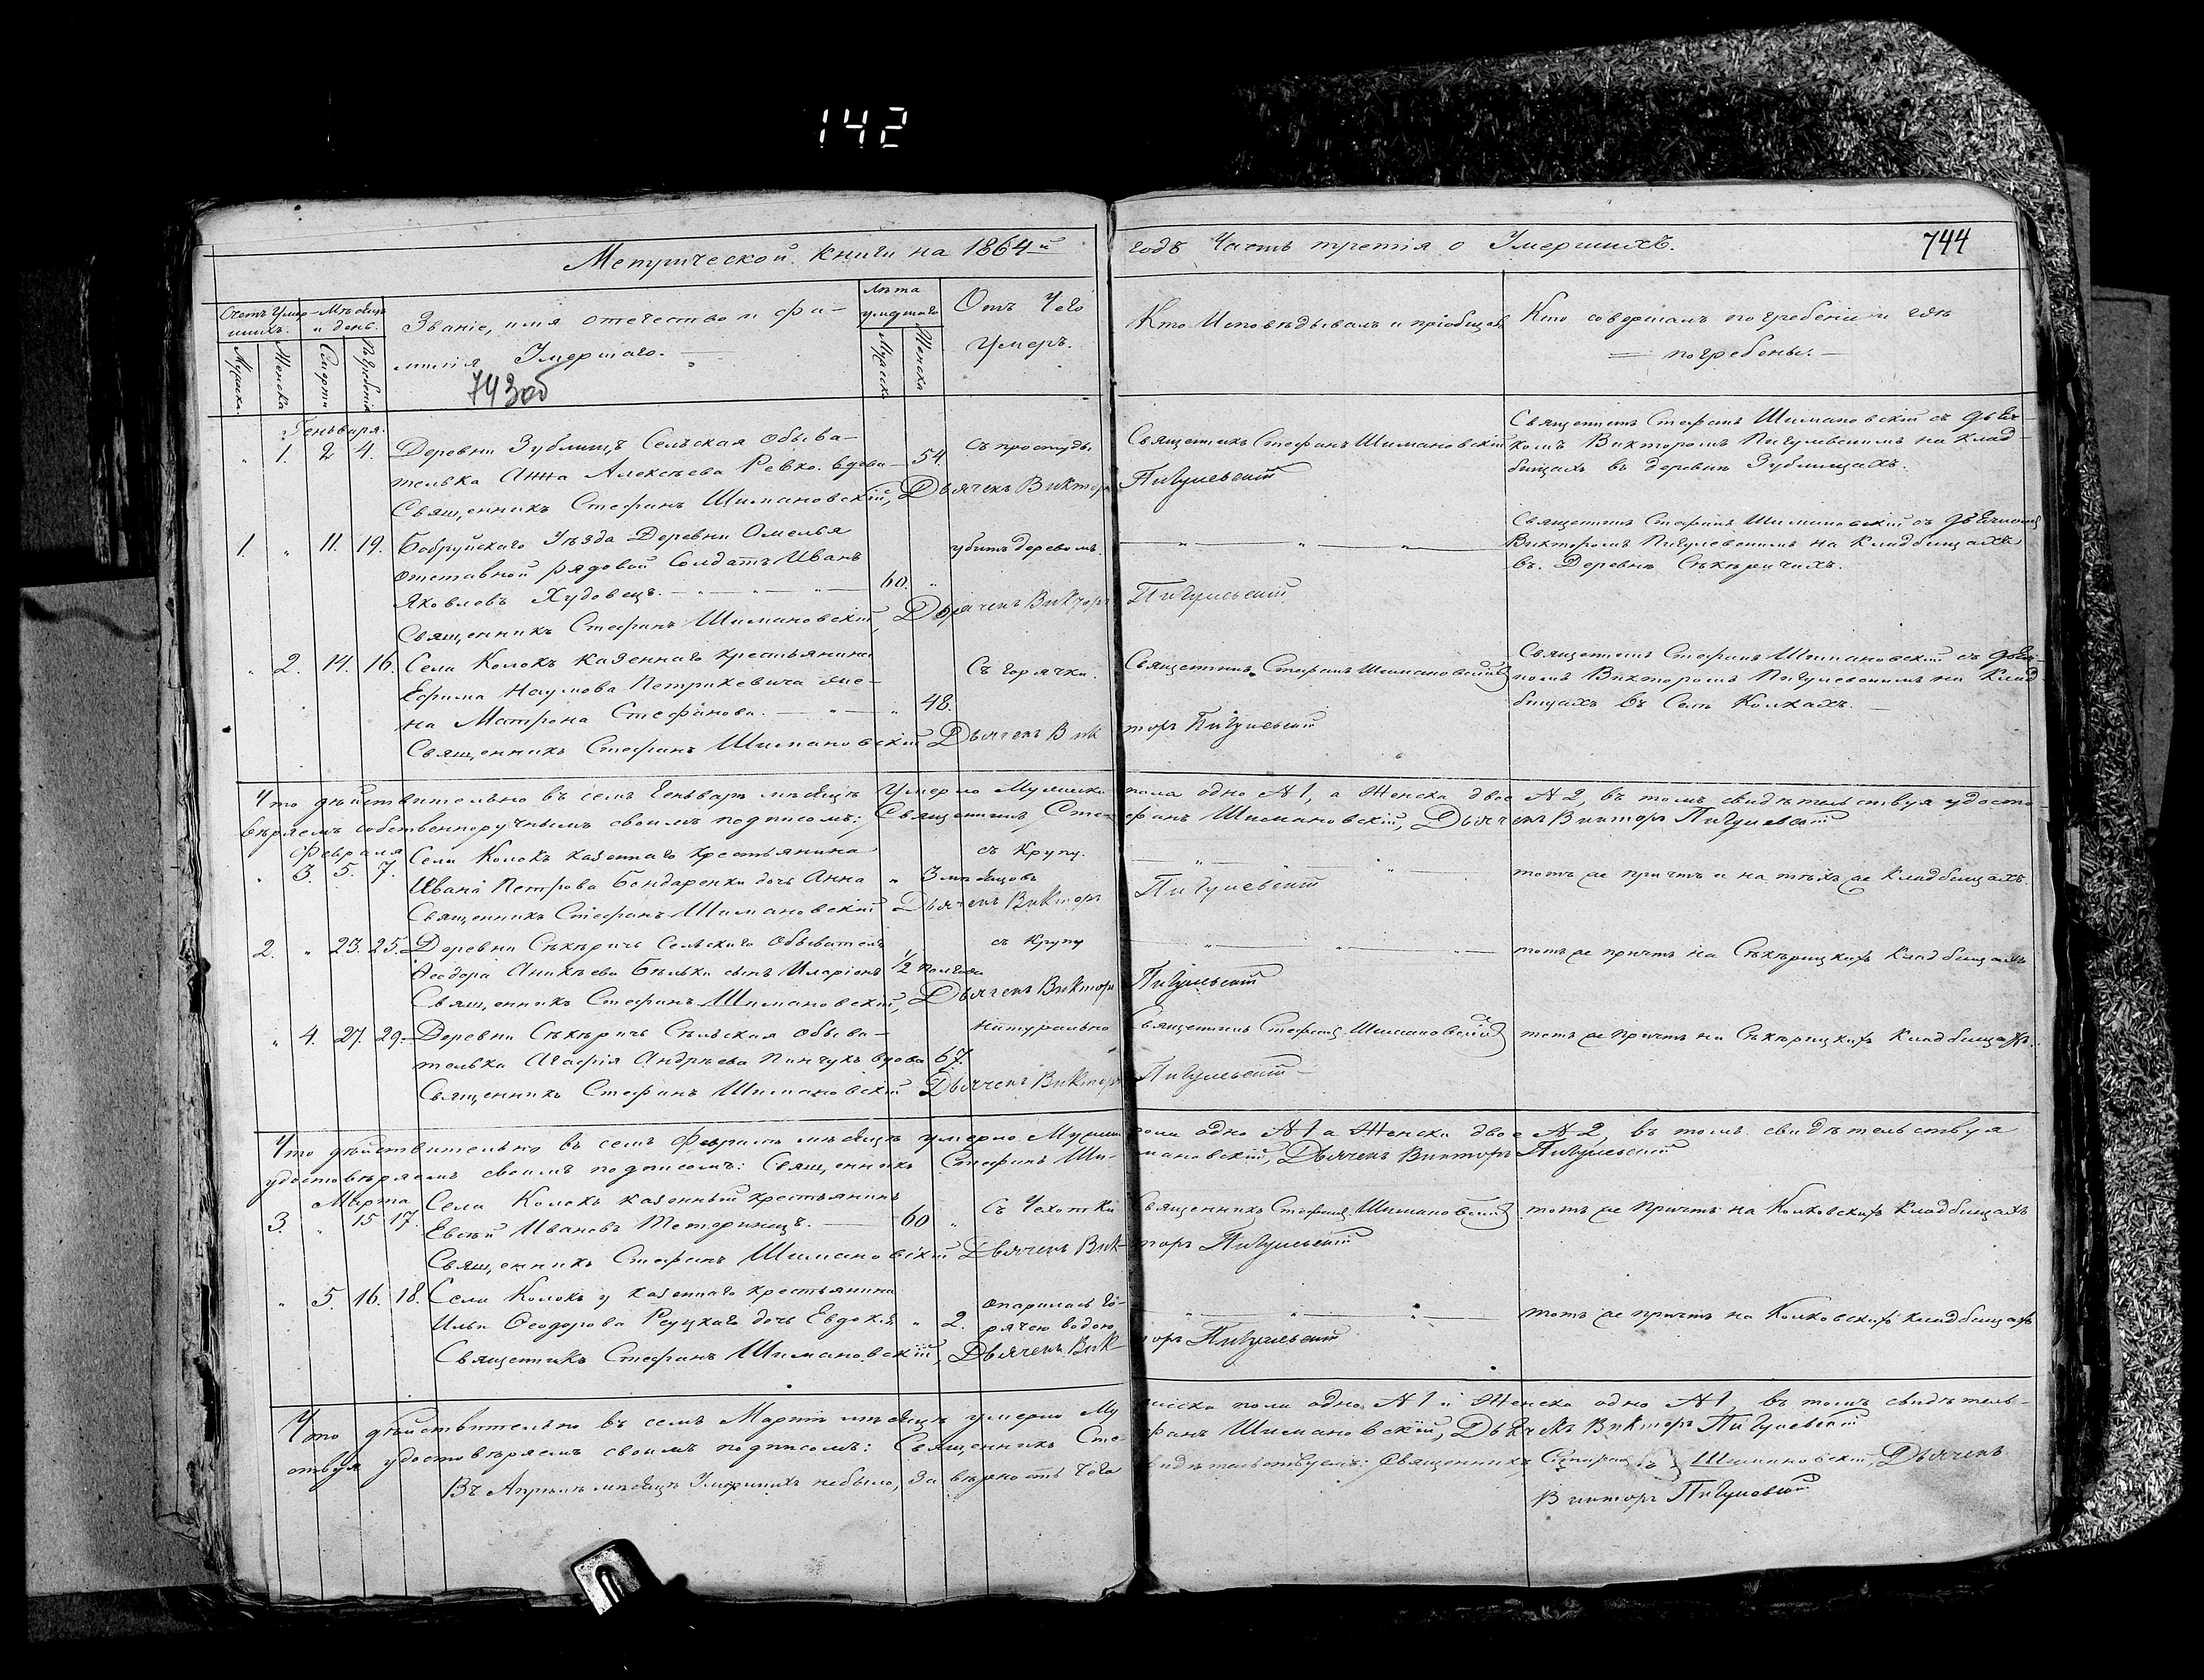 142
Метрической книги на 1864й
годъ Часть третія о Умершихъ.
744
Счетъ Умер-
шихъ.
Мѣсяцъ
и день.
Званіе, имя отечество и фа-
милія Умершаго.
743об
Лѣта
умершаго
Отъ Чего
умеръ.
Кто Исповѣдывалъ и пріобщалъ
Кто совершалъ погребеніе и гдѣ
погребены.
Мужска.
Женска
Смерти
Погребенія
Мужеска
Женска
Генваря.
" 1. 2 4. Деревни Зублищъ Сельская обыва-
телька Анна Алексѣева Ревко. вдова 54. съ простуды
Священникъ Стефанъ Шимановскій, Дьячекъ Викторъ Пигулевскій
Священникъ Стефанъ Шимановскій
Священникъ Стефанъ Шимановскій съ дьяч-
комъ Викторомъ Пигулевскимъ на клад-
бищахъ въ деревни Зублищахъ.
1. " 11. 19. Бобруйскаго Уѣзда Деревни Омелья
отставной рядовой Солдатъ Иванъ
Яковлевъ Худовецъ. 60. " убитъ деревомъ.
Священникъ Стефанъ Шимановскій, Дьячекъ Викторъ Пигулевскій
Священникъ Стефанъ Шимановскій съ дьячкомъ
Викторомъ Пигулевскимъ на Кладбищахъ
въ Деревнѣ Сѣкѣричихъ.
" 2. 14. 16. Села Колокъ казеннаго крестьянина
Ефима Наумова Петрикевича же-
на Матрона Стефанова. " 48. Съ горячки.
Священникъ Стефанъ Шимановскій Дьячекъ Викторъ Пигулевскій
Священникъ Стефанъ Шимановскій
Священникъ Стефанъ Шимановскій съ дьяч-
комъ Викторомъ Пигулевскимъ на Клад-
бищахъ въ Селѣ Колкахъ.
Что дѣйствительно въ семъ Генварѣ мѣсяцѣ умерло Мужска пола одно №1, а Женска двое №2, въ томъ свидѣтельствуя удосто-
вѣряемъ собственноручнымъ своимъ подписомъ: Священникъ Стефанъ Шимановскій, Дьячекъ Викторъ Пигулевскій
Февраля
" 3. 5. 7. Села Колокъ казеннаго крестьянина
Ивана Петрова Бондаренки дочь Анна " 3 мѣсяцовъ съ Крупу.
Священникъ Стефанъ Шимановскій Дьячекъ Викторъ Пигулевскій
тотъ же причтъ и на тѣхъ же Кладбищахъ.
2. " 23. 25. Деревни Сѣкѣричъ Сельскаго обывателя
Ѳеодора Аникѣева Бѣльки сынъ Иларіонъ 1/2 полгода съ Крупу
Священникъ Стефанъ Шимановскій, Дьячекъ Викторъ Пигулевскій
тотъ же причтъ на Сѣкѣрицкихъ Кладбищахъ
" 4. 27. 29. Деревни Сѣкѣричъ Сельская обыва-
телька Агафія Андрѣева Пинчукъ вдова 67. натурально
Священникъ Стефанъ Шимановскій Дьячекъ Викторъ Пигулевскій
Священникъ Стефанъ Шимановскій
тотъ же причтъ на Сѣкѣрицкихъ Кладбищахъ.
Что дѣйствительно въ семъ Февралѣ мѣсяцѣ умерло Мужска пола одно №1 а Женска двое №2, въ томъ свидѣтельствуя
удостовѣряемъ своимъ подписомъ: Священникъ Стефанъ Шимановскій, Дьячекъ Викторъ Пигулевскій
Марта
3. " 15 17. Села Колокъ казенный крестьянинъ
Евсѣй Ивановъ Тетеринецъ. 60 " Съ Чехотки
Священникъ Стефанъ Шимановскій Дьячекъ Викторъ Пигулевскій
Священникъ Стефанъ Шимановскій
тотъ же причтъ на Колковскихъ Кладбищахъ
" 5. 16. 18. Села Колокъ у казеннаго крестьянина
Ильи Ѳеодорова Рецкаго дочь Евдокія " 2. опарилась го-
рячею водою
Священникъ Стефанъ Шимановскій, Дьячекъ Викторъ Пигулевскій
тотъ же причтъ на Колковскихъ кладбищахъ
Что дѣйствительно въ семъ Мартѣ мѣсяцѣ умерло Мужеска пола одно №1 и Женска одно №1, въ томъ свидѣтель-
ствуя удостовѣряемъ своимъ подписомъ: Священникъ Стефанъ Шимановскій, Дьячекъ Викторъ Пигулевскій
Въ Апрѣлѣ мѣсяцѣ Умершихъ небыло, За вѣрность чего свидѣтельствуемъ: Священникъ Стефанъ Шимановскій, Дьячекъ
Викторъ Пигулевскій